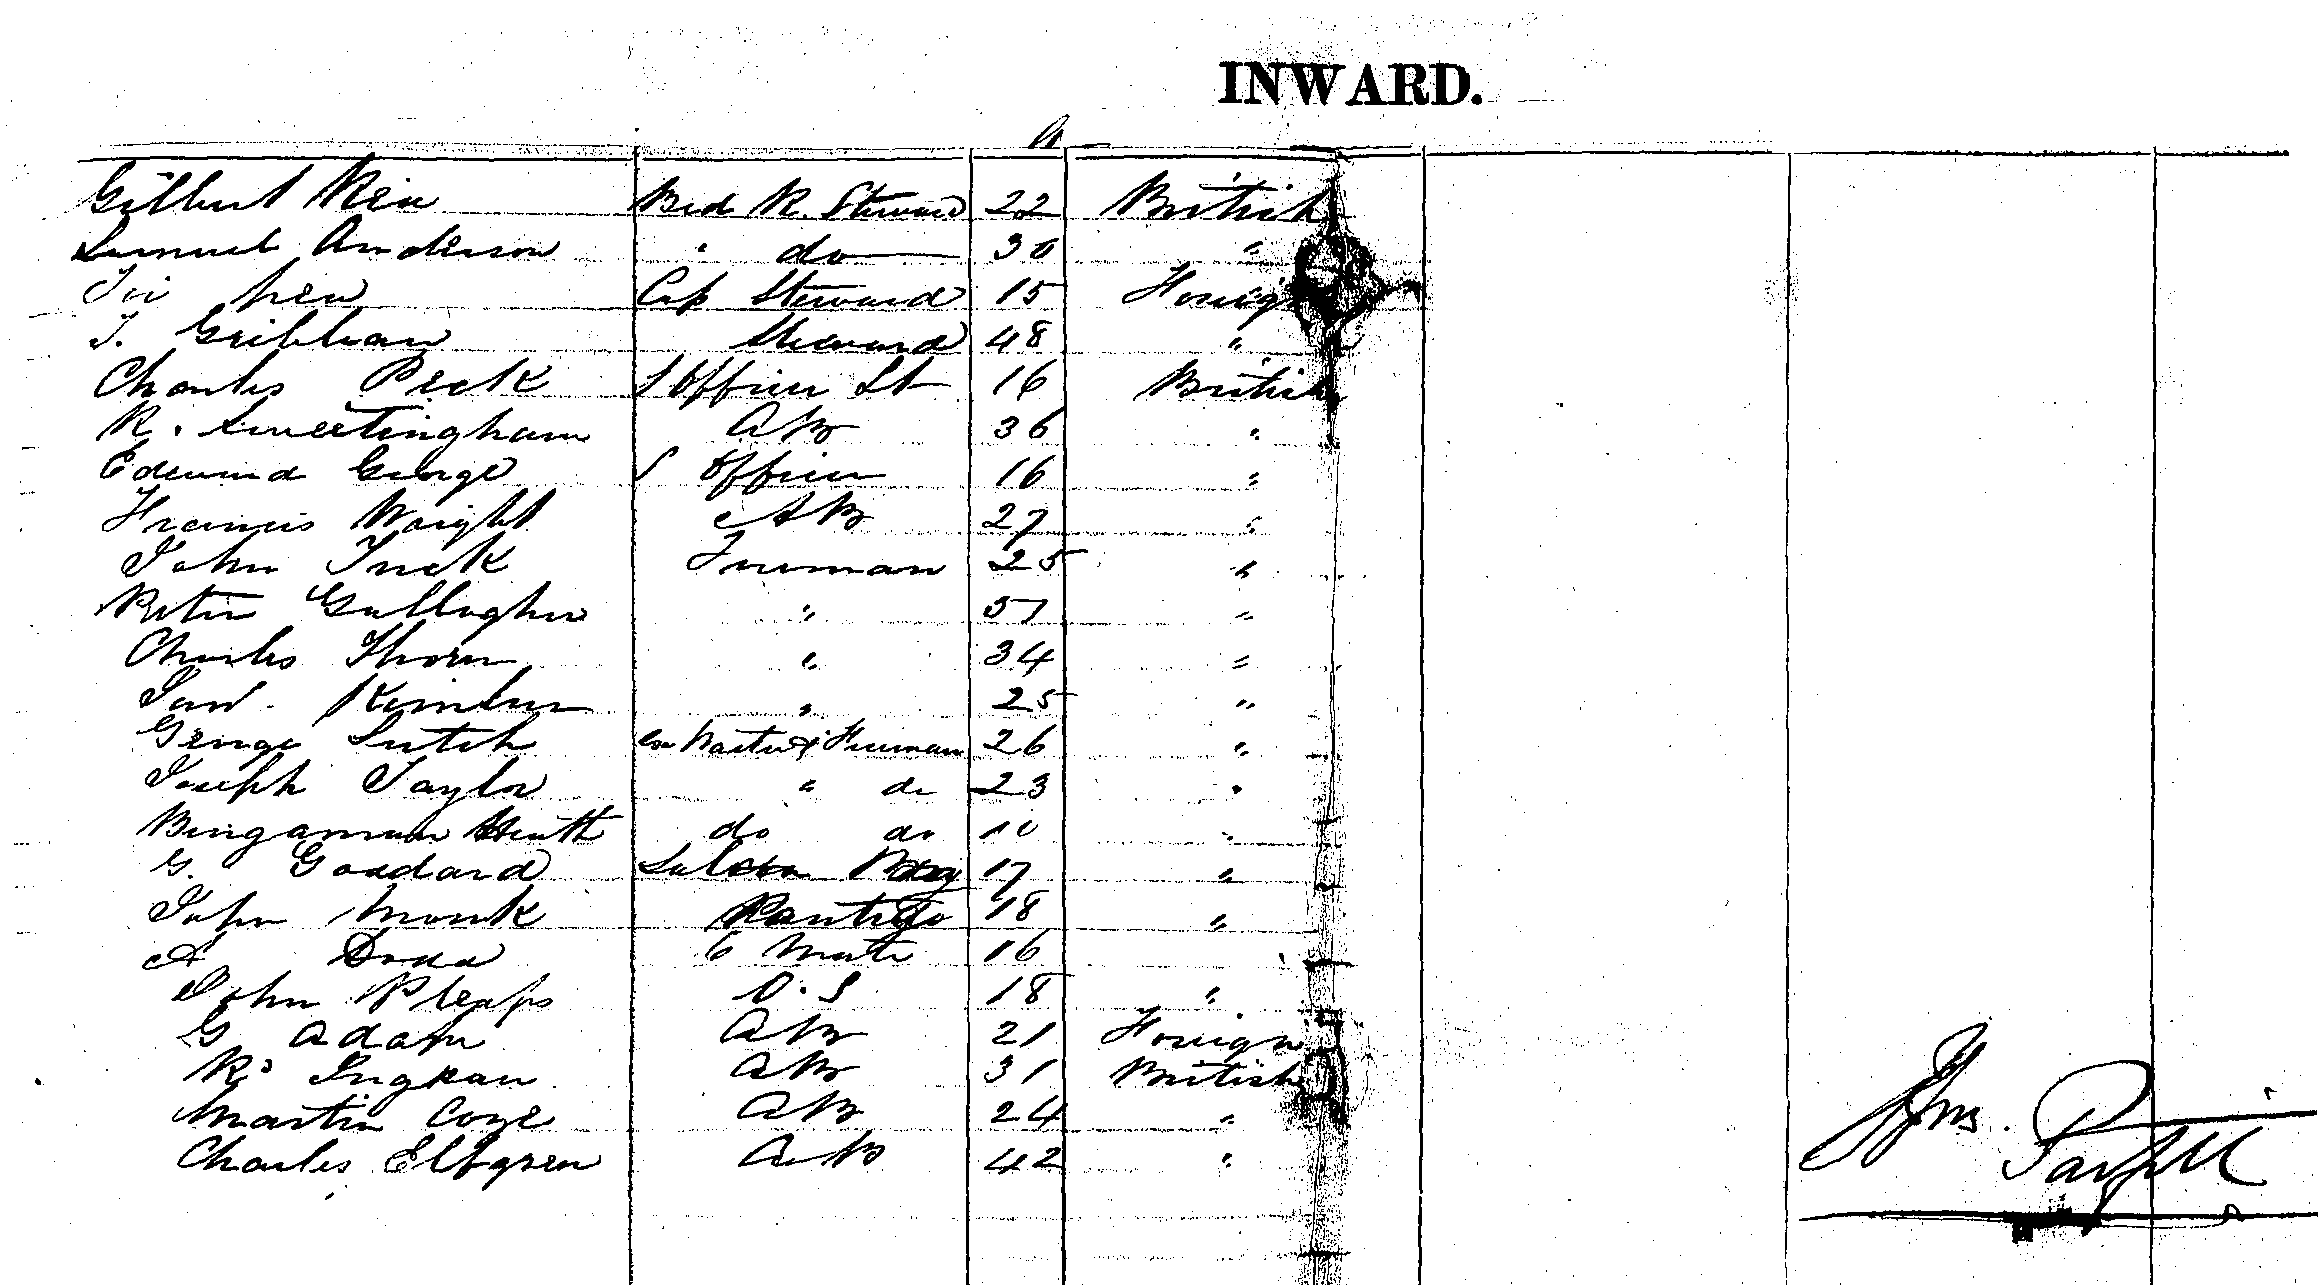 INWARD.
Gilbert Rew Bed R. Steward 22 British
Samuel Anderson " do 30 "
Cap Steward 15 Foreign
J. Gribham Steward 48 "
Charles Peck S Officer St 16 British
R. Sweetingham AB 36 "
Edmund George S Officer 16 "
Francis Wright AB 27 "
John Tuck Fireman 25 "
Peter Gallagher " 37 "
Charles Thorn " 34 "
Saml. " 25 "
George Sutch Fireman 26 "
Joseph Taylor " do 23 "
Bingaman Heath do do "
G. Goddard Saloon Boy 17 "
John Monk 18 "
A Dodd 16 "
John Pleaps O.S 18 "
G Adam AB 21 Foreign
R. Ingram AB 31 British
Martin Coye AB 24 "
Charles Elfgren AB 42 "
Wm. Parfitt